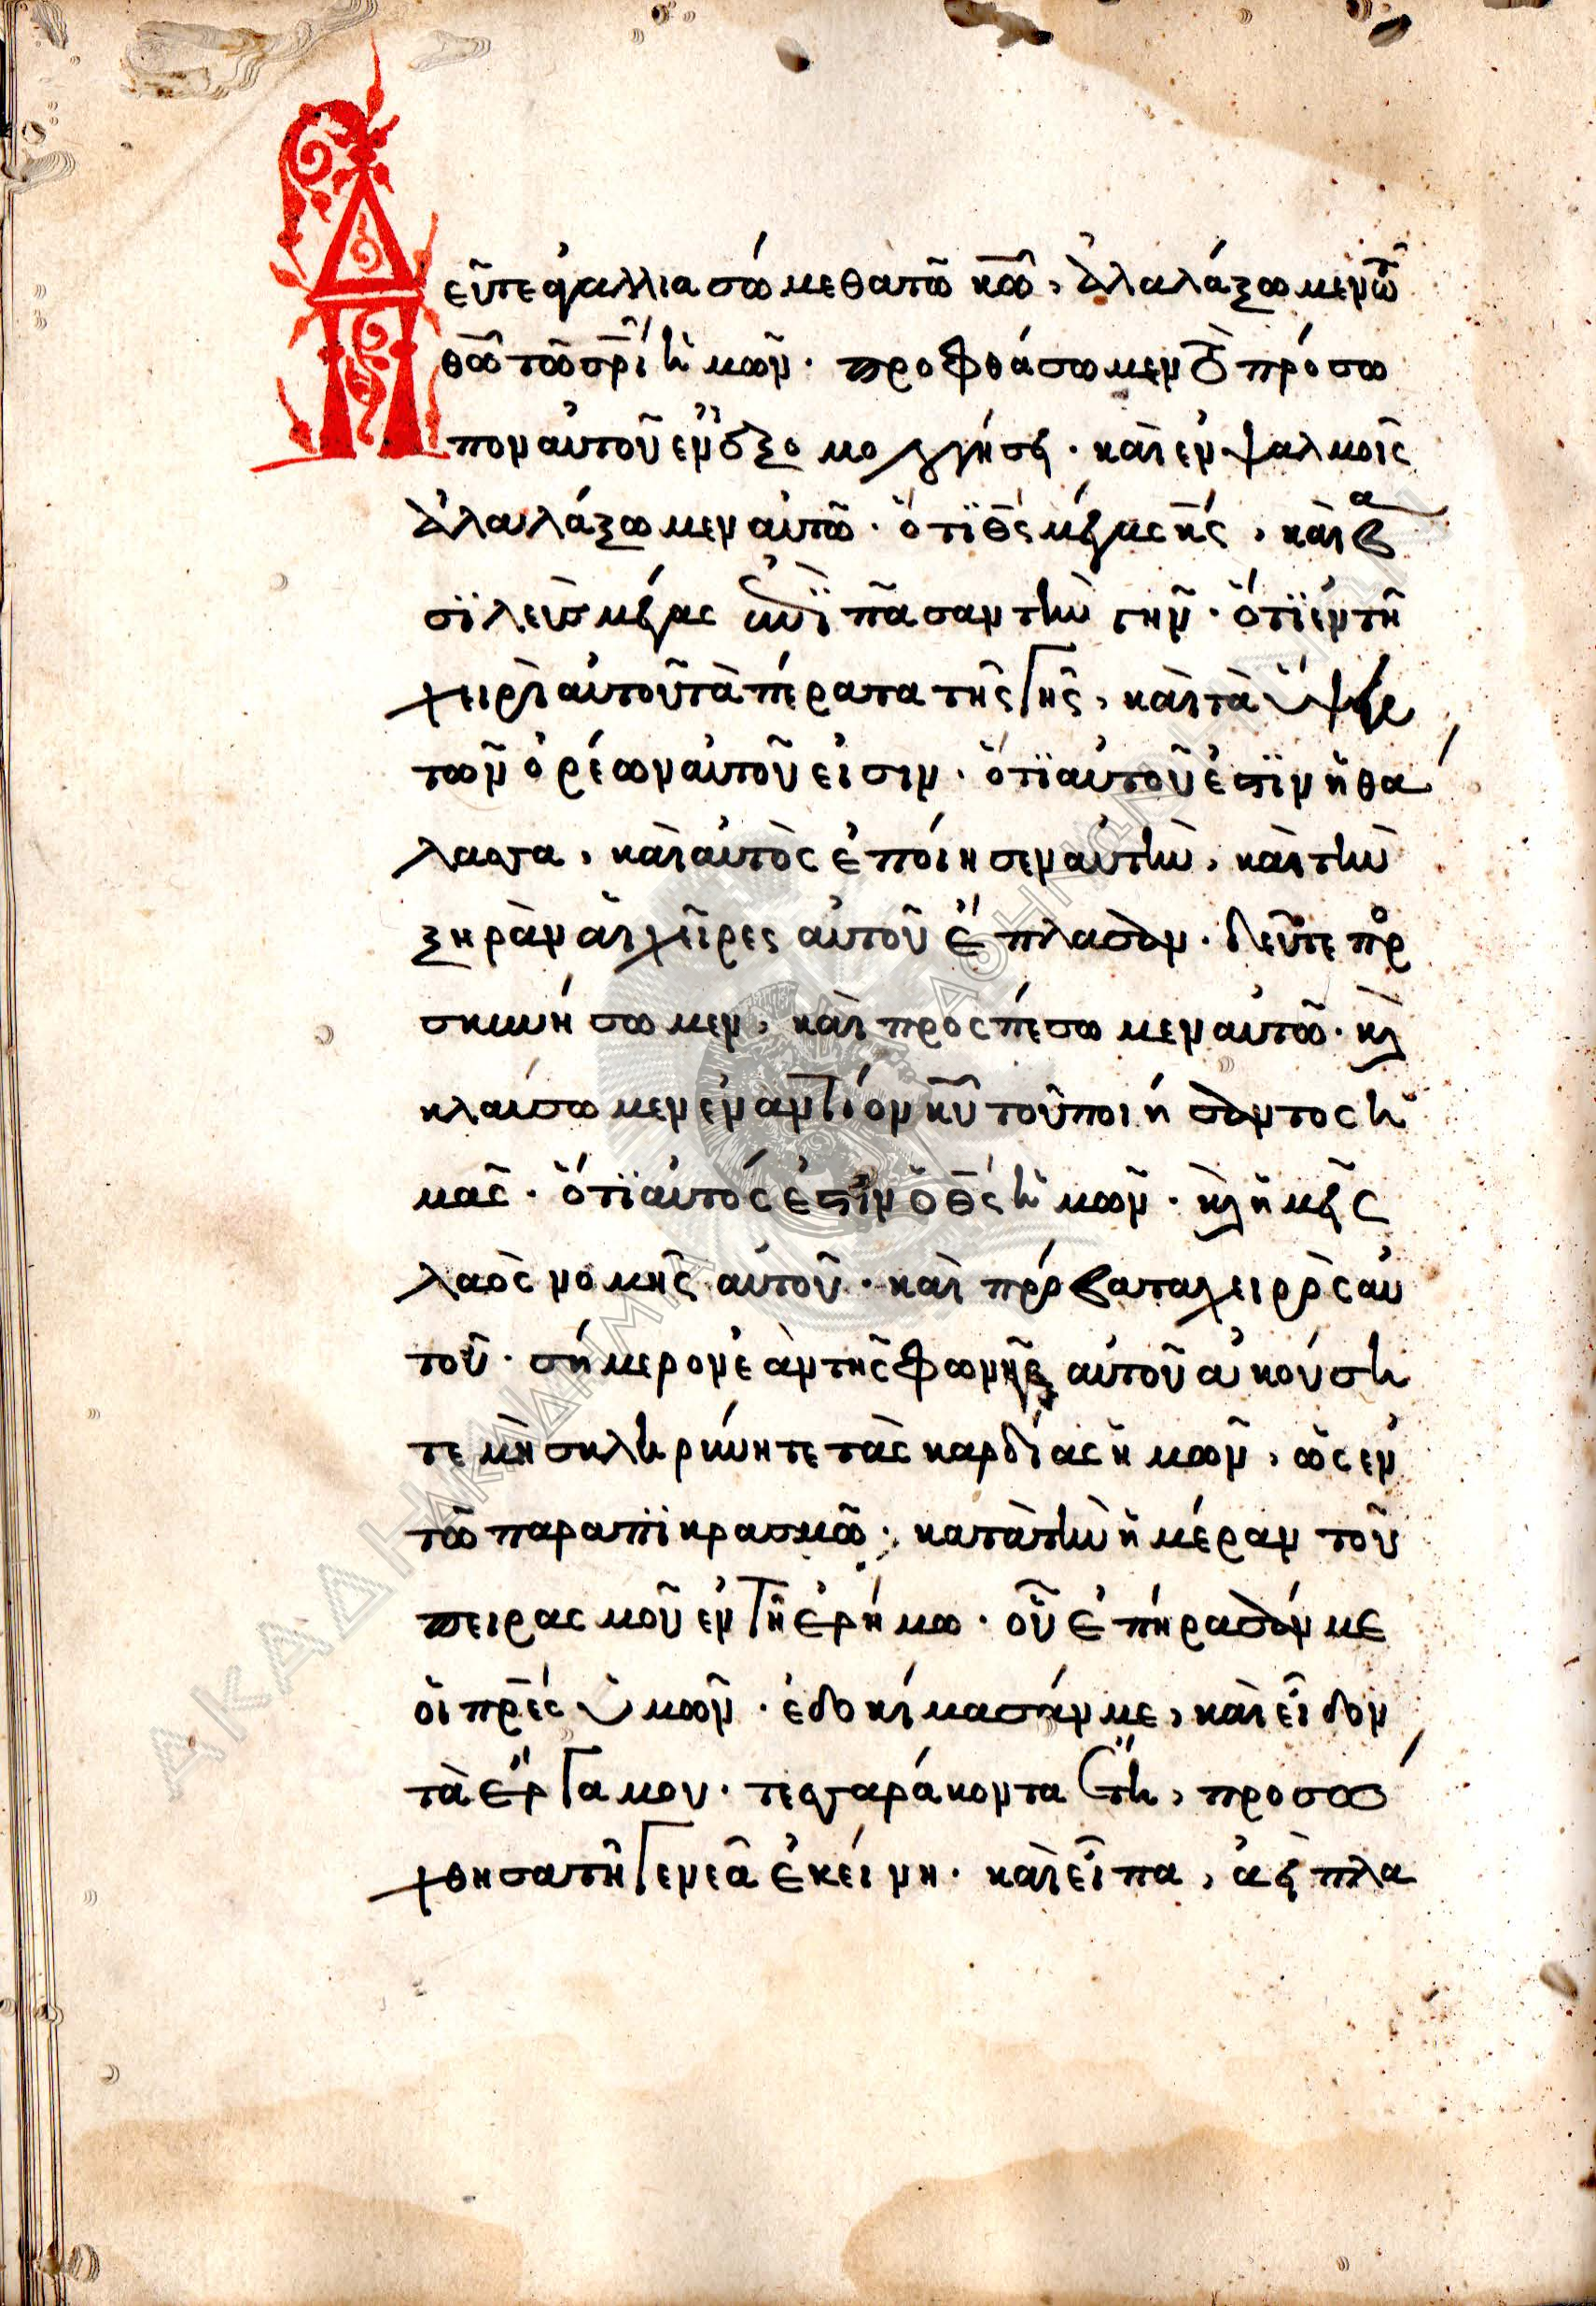 Δεῦτε ἀγαλλιασώμεθα τῶ κῶ, ἀλαλάξωμεν τῶ
θῶ τῶ σρι ἡμῶν. προφθάσωμεν τὸ πρόσω
πον αὐτοῦ ἐν ἐξομολογήσει. καὶ ἐν ψαλμοῖς
ἀλαλάξωμεν αὐτῶ. ὅτι θς μέγας κς, καὶ βα
σιλεὺς μέγας ἐπὶ πᾶσαν τὴν γῆν. ὅτι ἐν τῆ
χειρὶ αὐτοῦ τὰ πέρατα τῆς γῆς, καὶ τὰ ὕψει
τῶν ὀρέων αὐτοῦ εἰσιν. ὅτι αὐτοῦ ἐστιν ἡ θά
λασσα, καὶ αὐτὸς ἐποίησεν αὐτὴν, καὶ τὴν
ξηρὰν αἱ χεῖρες αὐτοῦ ἔπλασαν. δεῦτε προ
σκυνήσωμεν, καὶ προςπέσωμεν αὐτῶ. καὶ
κλαύσωμεν ἐναντίον κυ τοῦ ποιήσαντος ἡ
μᾶς. ὅτι αὐτός ἐστιν ὁ θς ἡμῶν. καὶ ἡμεῖς
λαὸς νομῆς αὐτοῦ. καὶ πρόβατα χειρὸς αὐ
τοῦ. σήμερον ἐὰν τῆς φωνῆς αὐτοῦ ἀκούση
τε μὴ σκληρύνητε τὰς καρδίας ἡμῶν, ὡς ἐν
τῶ παραπικρασμῶ. κατὰ τὴν ἡμέραν τοῦ
πειρασμοῦ ἐν τῆ ἐρήμω. οὗ ἐπήρασάν με
οἱ πρες ὑμῶν. ἐδοκίμασάν με, καὶ εἶδον
τὰ ἔργα μου. τεσσαράκοντα ἔτη, προσώ
χθησα τῆ γενεᾶ ἐκείνη. καὶ εἶπα, ἀεὶ πλα